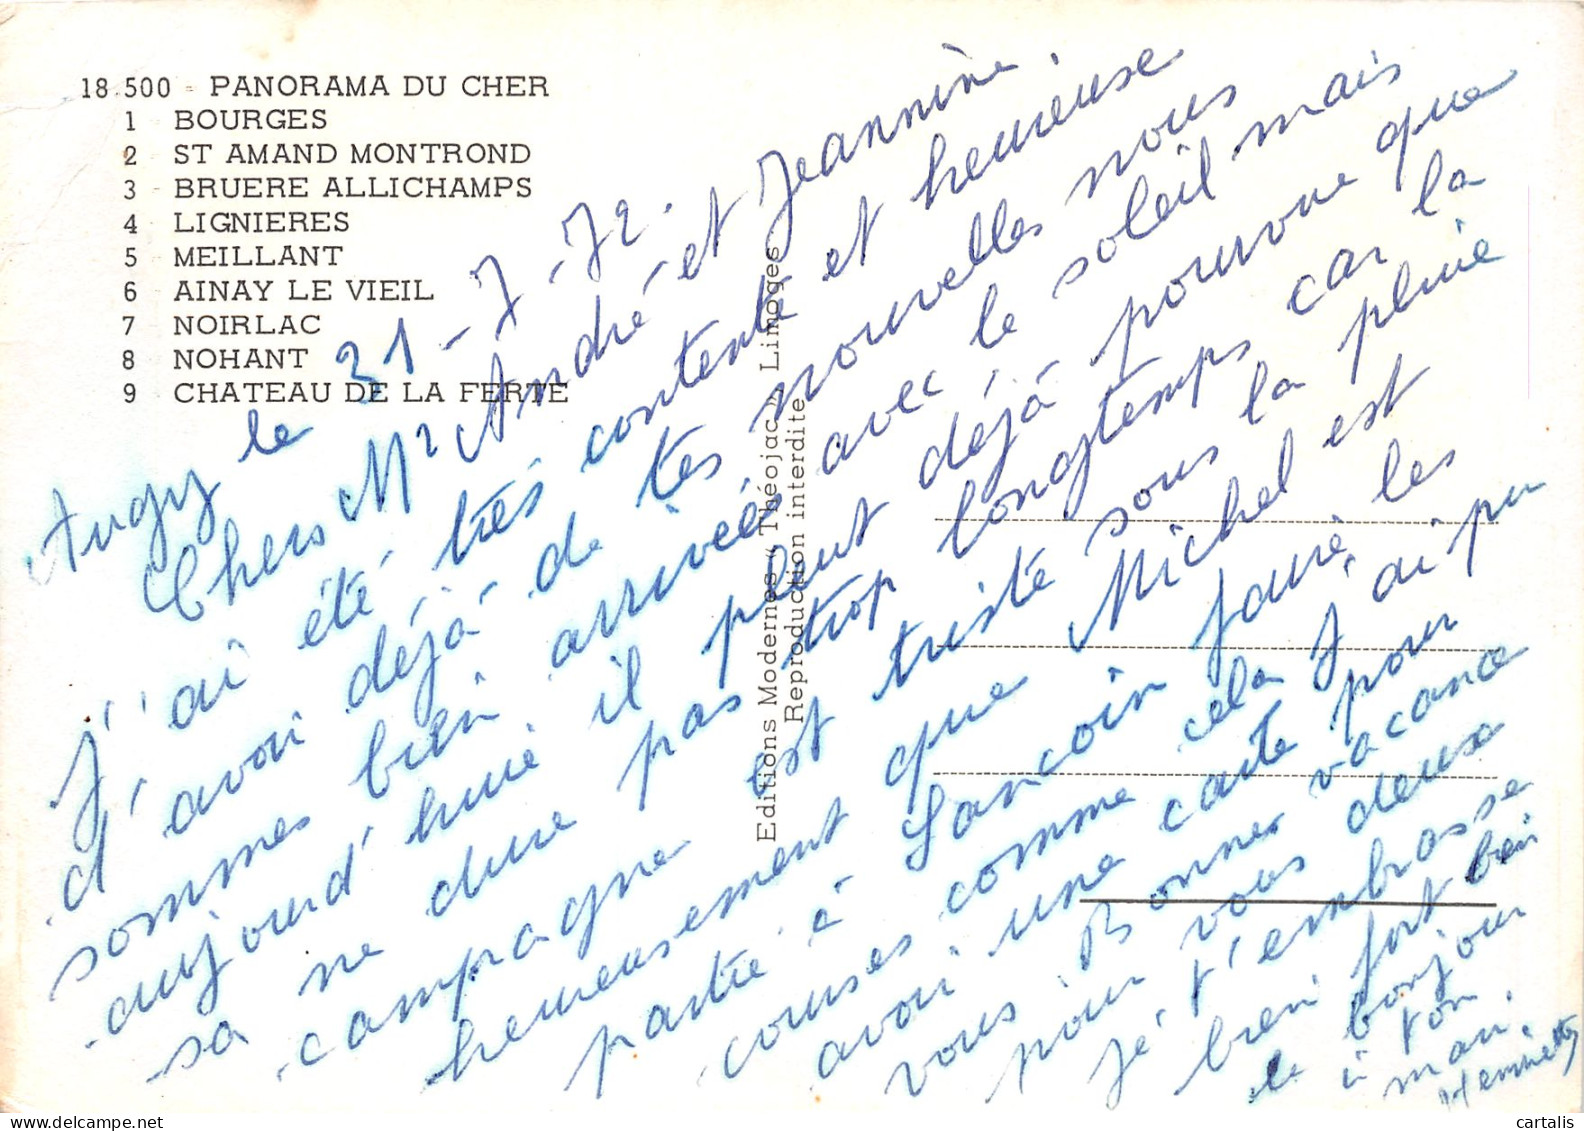 18.500 - PANORAMA DU CHER
1 BOURGES
2 ST AMAND MONTROND
3 BRUERE ALLICHAMPS
4 LIGNIERES
5 MEILLANT
6 AINAY LE VIEIL
7 NOIRLAC
8 NOHANT
9 CHATEAU DE LA FERTE
Editions Modernes « Théojac » Limoges
Reproduction interdite
Augy le 31-7-72.
Chers Mr André et Jeannine.
J'ai été très contente et heureuse
d'avoir déjà de tes nouvelles nous
sommes bien arrivées avec le soleil mais
aujourd'hui il pleut déjà pourvue que
sa ne dure pas trop longtemps car la
campagne est triste sous la pluie
heureusement que Michel est
partie à Sancoin faire les
courses comme cela J'ai pu
avoir une carte pour
vous Bonnes vacance
pour vous deux
Je t'embrasse
bien fort bien
le bonjour
à ton
mari.
Henriette
cartalis